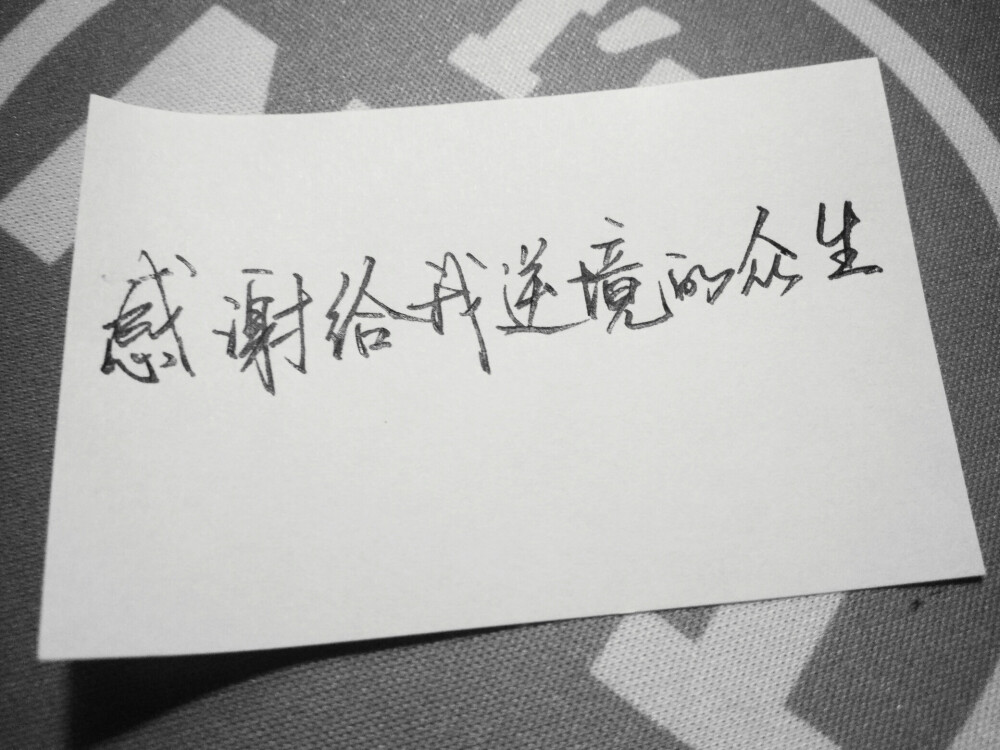 感谢给我逆境的众生